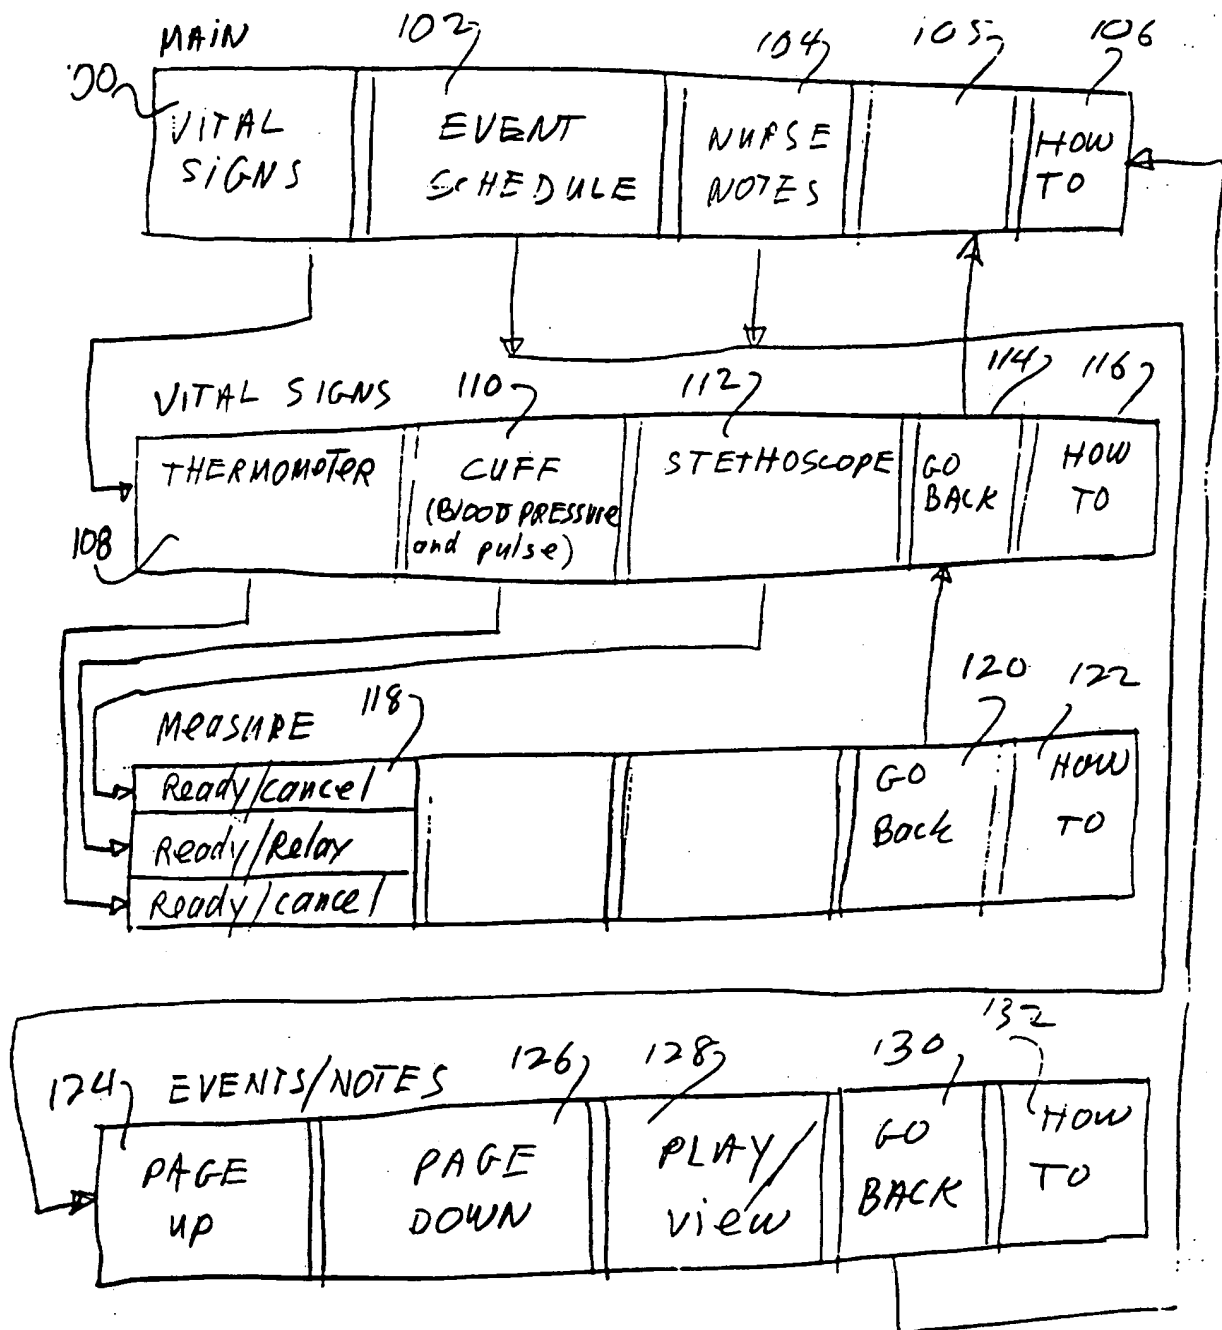 MAIN 102 104 105 106
00
VITAL SIGNS
EVENT SCHEDULE
NURSE NOTES
HOW TO
VITAL SIGNS 110 112 114 116
THERMOMETER
CUFF
(BLOOD PRESSURE
and pulse)
STETHOSCOPE
GO BACK
HOW TO
108
MeasuRE 118 120 122
Ready/cancel
Ready/Relay
Ready/cancel
GO Back
HOW TO
124 EVENTS/NOTES 126 128 130 132
PAGE UP
PAGE DOWN
PLAY/ View
GO BACK
HOW TO